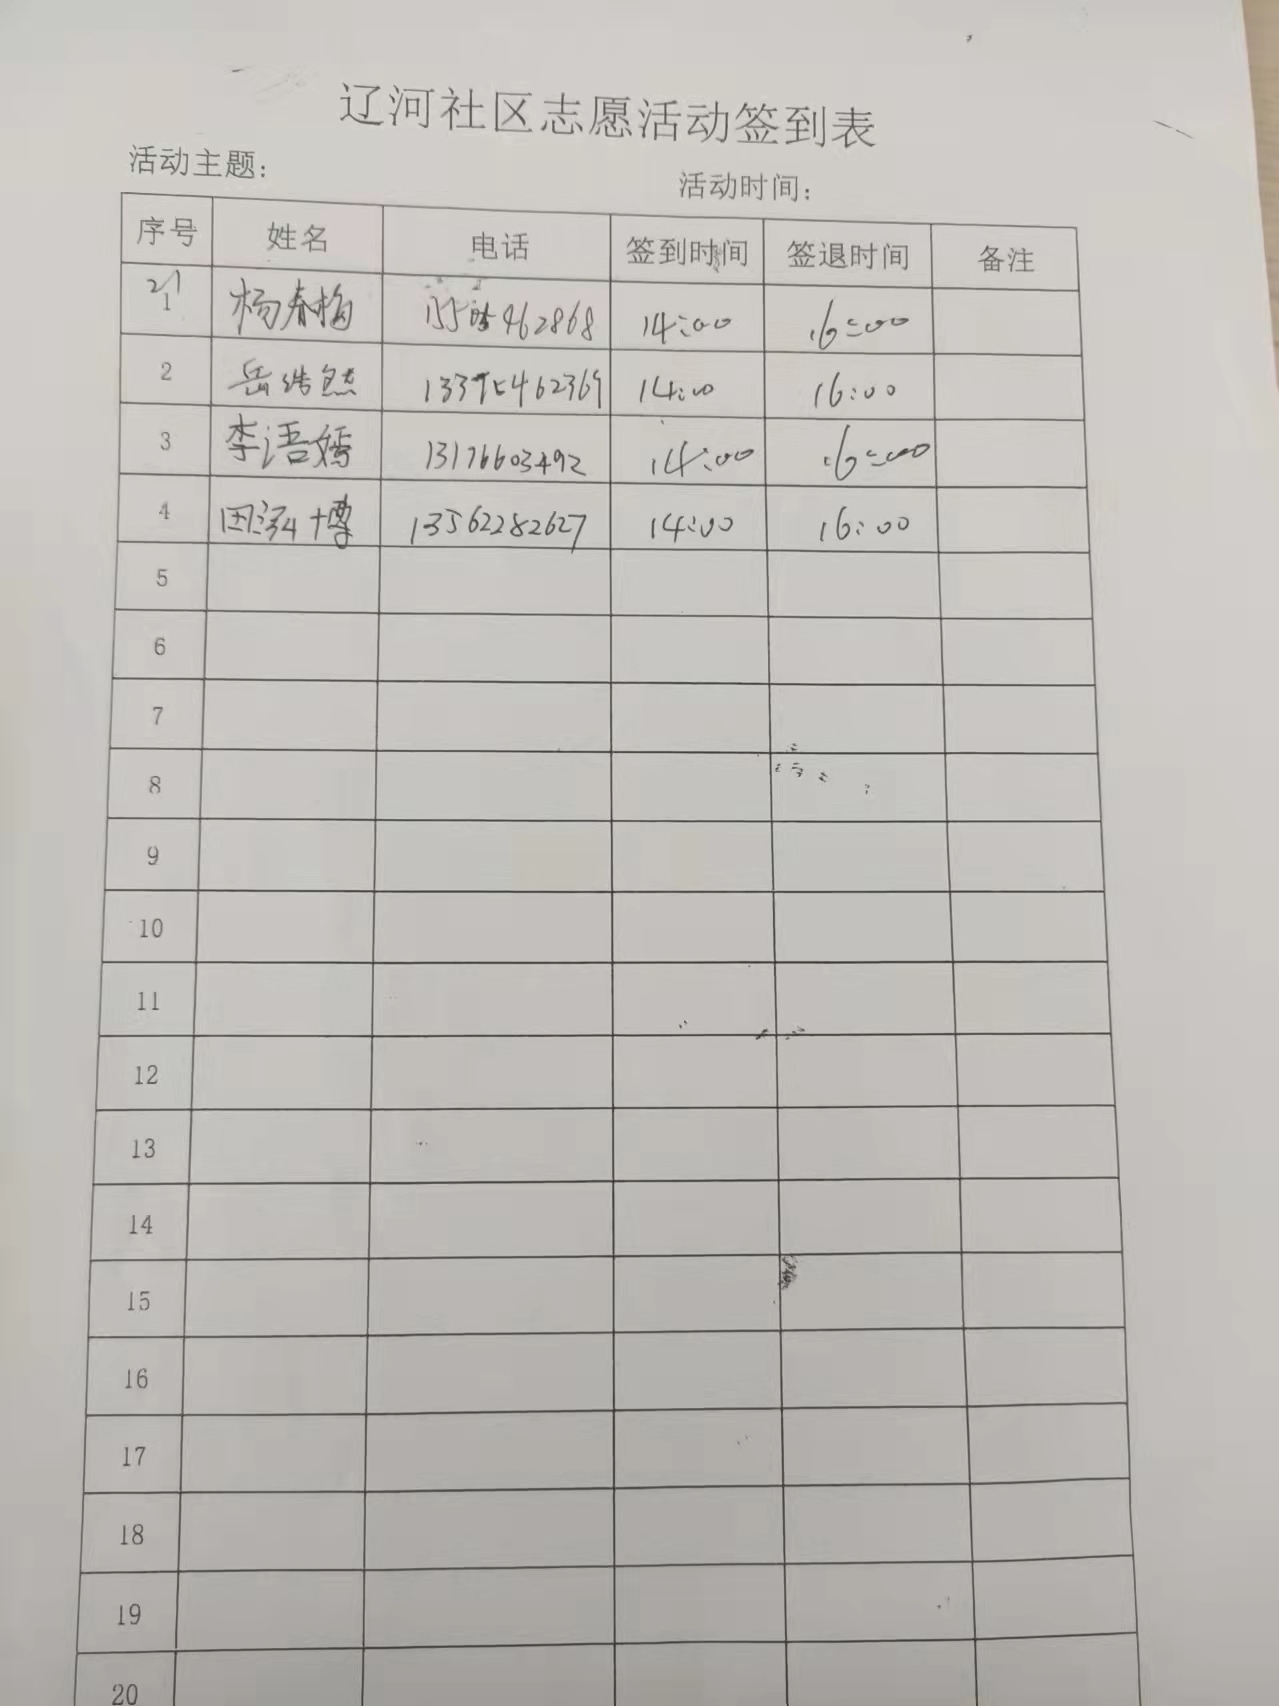 辽河社区志愿活动签到表
活动主题:
活动时间:
序号 姓名 电话 签到时间 签退时间 备注
1 杨春梅 14:00 16:00
2 岳浩然 14:00 16:00
3 李语嫣 13176603492 14:00 16:00
4 田泓博 13562282627 14:00 16:00
5
6
7
8
9
10
11
12
13
14
15
16
17
18
19
20